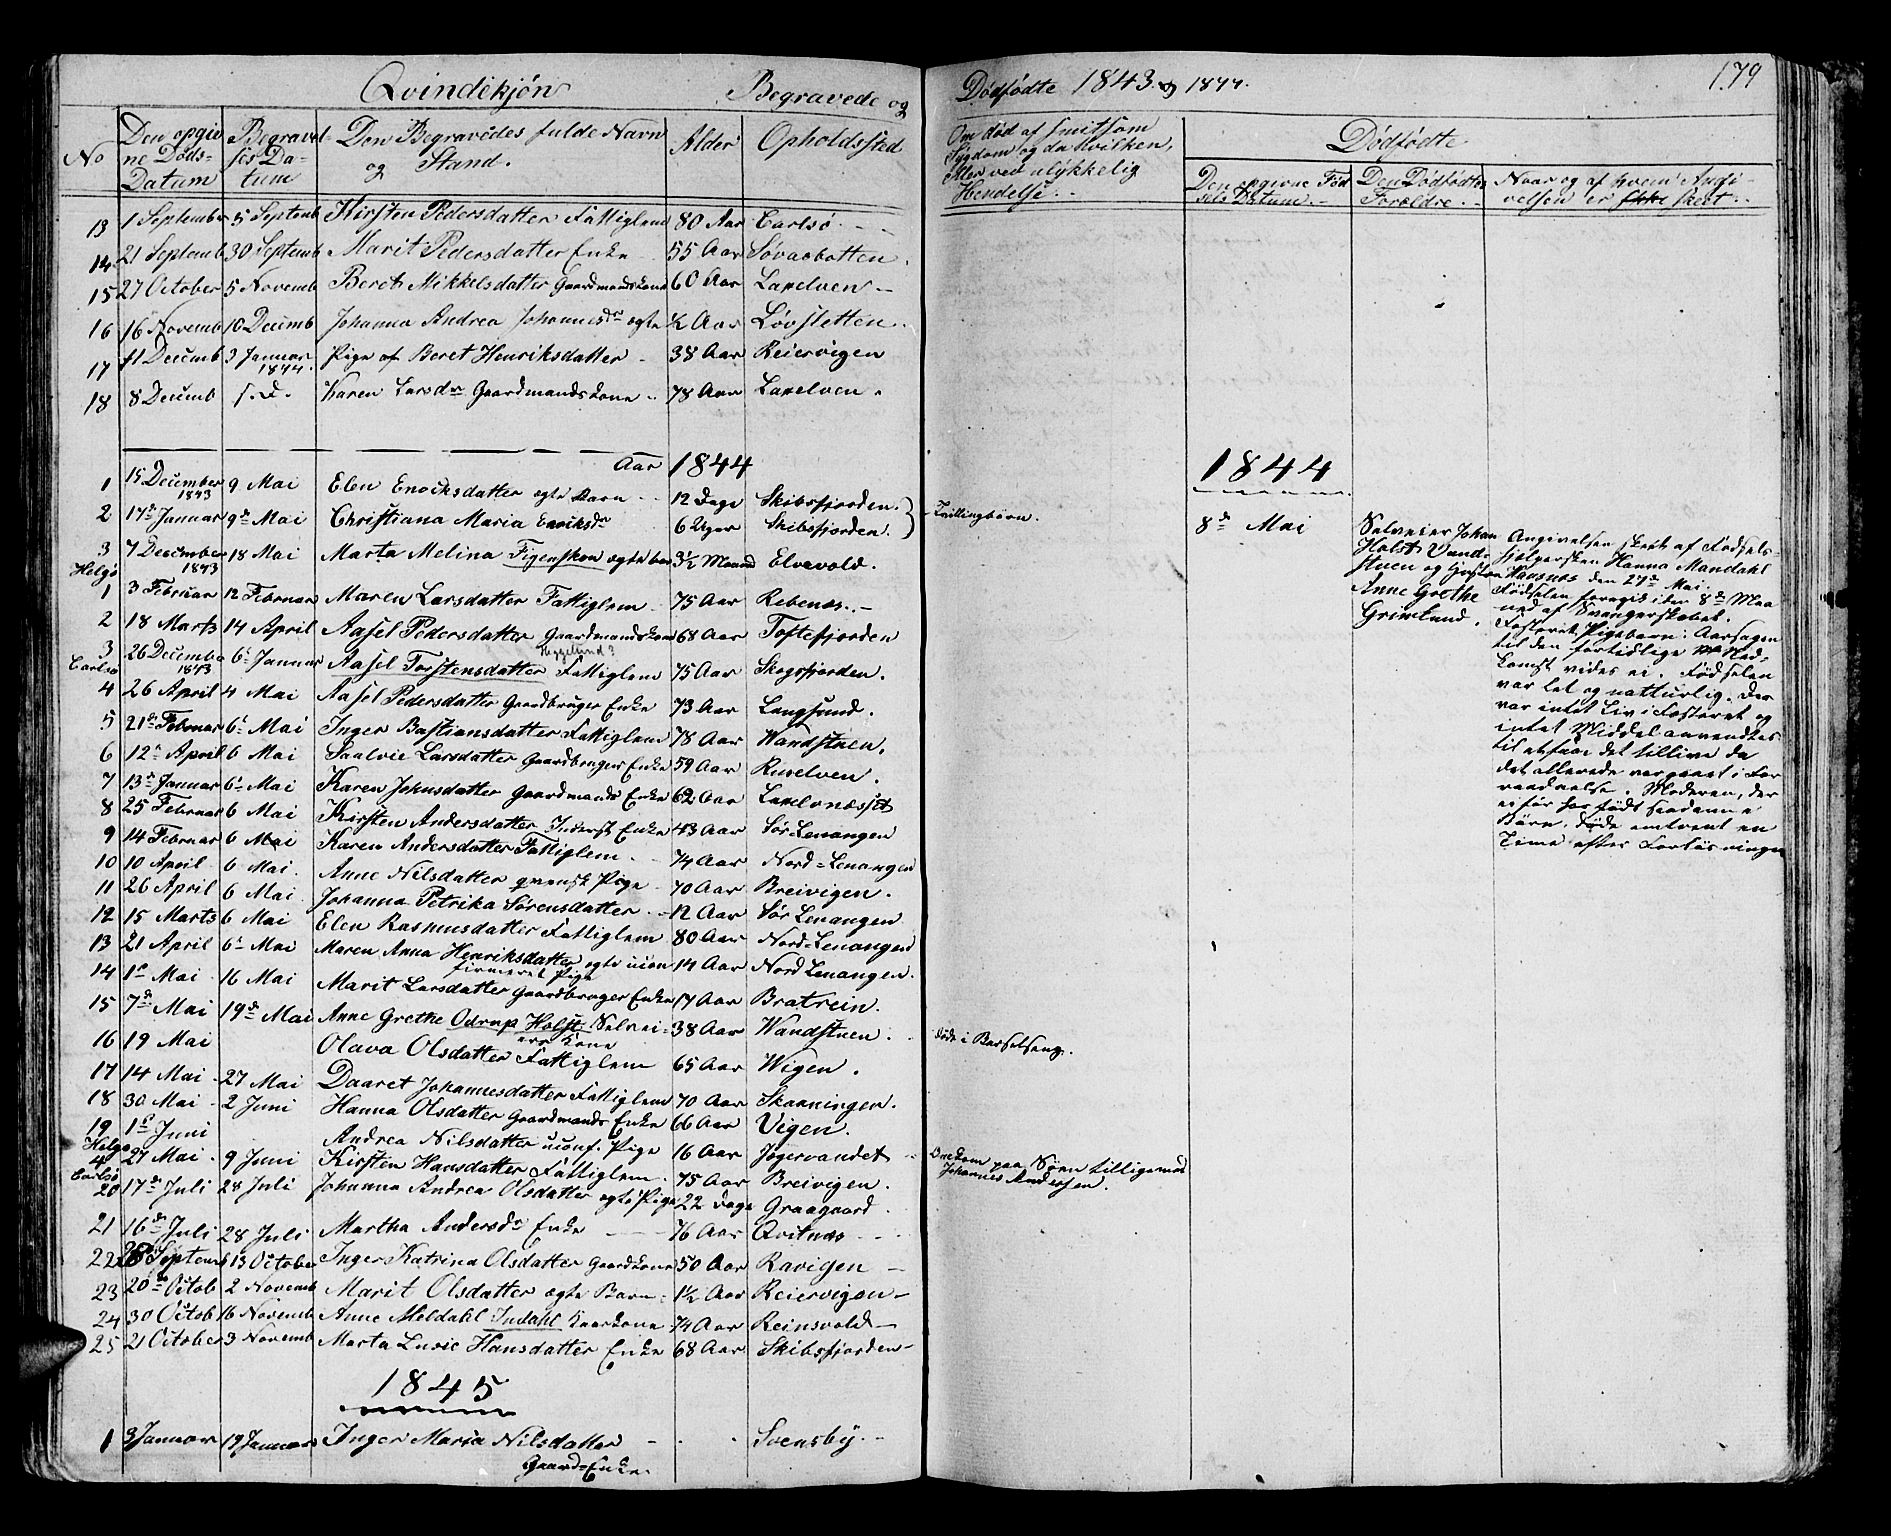 Qvindekjøn Begravede og Dødfødte 1843 og 1844. 179
No
Den opgivne Døds-Datum
Begravelses Datum
Den Begravedes fulde Navn og Stand.
Alder
Opholdssted
Om død af smitsom Sygdom og da hvilken, eller ved ulykkelig Hendelse.
Dødfødte
Den opgivne Fødsels Datum.
Den Dødfødtes Forældre.
Naar og af hvem Angivelsen er skeet.
13 1 September 5 Septemb Kirsten Pedersdatter Fattiglem 80 Aar Carlsø.
14 21 Septemb 30 Septemb Marit Pedersdatter Enke 55 Aar Søvaobotten.
15 27 October 5 Novemb Beret Mikkelsdatter Gaardmandskone 60 Aar Laxelven
16 16 Novemb 10 Decemb Johanna Andrea Johannesdr ægte ½ Aar Løvsletten.
17 11 Decemb 3 Januar 1844. Pige af Beret Henriksdatter 38 Aar Reiervigen
18 8 Decemb s.d. Karen Larsdr Gaardmandskone 78 Aar Laxelven.
Aar 1844
1844
1 15 December 1843 9 Mai Elen Enocksdatter ægte Barn 12 Dage Skibsfjorden.
2 17de Januar 9de Mai Christiana Maria Enoksdr 6 Uger Skibsfjorden. Tvillingbørn.
3 7 December 1843 18 Mai Marta Melina Figenskou ægte barn 3½ Maaned Elvevold.
Helgø
1 3 Februar 12 Februar Maren Larsdatter Fattiglem 75 Aar Rebenæs.
2 18 Marts 14 April Aasel Pedersdatter Gaardmandskone 68 Aar Toftefjorden
Heggelund?
3 26 Decemb 1843 6 Januar Aasel Torstensdatter Fattiglem 75 Aar Skogsfjorden.
Carlsø
4 26 April 4 Mai Aasel Pedersdatter Gaardbruger Enke 73 Aar Langsund.
5 21de Februar 6 Mai Inger Bastiansdatter Fattiglem 78 Aar Vandstuen.
6 12 April 6 Mai Saalvie Larsdatter Gaardbruger Enke 59 Aar Ruselven.
7 13 Januar 6 Mai Karen Johnsdatter Gaardmands Enke 62 Aar Laxelvnæsset
8 25 Februar 6 Mai Kirsten Andersdatter Inderst Enke 43 Aar Sør Lenangen
9 14 Februar 6 Mai Karen Andersdatter Fattiglem. 74 Aar Nord=Lenangen
10 10 April 6 Mai. Anne Nilsdatter qvensk Pige 70 Aar Breivigen.
11 26 April 6 Mai Johanna Petrika Sørensdatter 12 Aar Sør Lenangen
12 15 Marts 6 Mai Elen Rasmusdatter Fattiglem 80 Aar Nord-Lenangen
13 21 April 6 Mai Maren Anna Henriksdatter ægte uconfirmeret Pige 14 Aar Nord Lenangen.
14 1 Mai 16 Mai Marit Larsdatter Gaardbruger Enke 17 Aar Bratrein.
15 7de Mai 19de Mai Anne Grethe Odrup Holst Selveiers Kone 38 Aar Vandstuen. døde i Barselseng.
16 19 Mai Olava Olsdatter Fattiglem 65 Aar Wigen.
17 14 Mai 27 Mai Daaret Johannesdatter Fattiglem 70 Aar Skaaningen.
18 30 Mai 2 Juni Hanna Olsdatter Gaardmands Enke 66 Aar Vigen.
19 1 Juni Andrea Nilsdatter uconf. Pige 16 Aar Jøgervandet Druknom paa Søen tilligemed Johannes Andersen.
Helgø
4 27 Mai 9 Juni Kirsten Hansdatter Fattiglem 75 Aar Breivigen.
Carlsø
20 17de Juli 28 Juli Johanna Andrea Olsdatter ægte Pige 22 Dage Graagaard.
21 16de Juli 28 Juli Martha Andersdr Enke 76 Aar Qvitnæs
22 28 Septemb 13 October Inger Katrina Olsdatter Gaardkone 50 Aar Ravigen
23 20de Octob 2 Novemb Marit Olsdatter ægte Barn 1½ Aar Reiervigen
24 30 Octob 16 Novemb Anne Meldahl Indahl Kaarkone 74 Aar Reinsvold
25 21 October 3 Novemb Marta Lusie Hansdatter Enke 68 Aar Skibsfjorden
1845
1 3 Januar 19 Januar Inger Maria Nilsdatter Svensby.
Gaard=Enke.
8de Mai
Selveier Johan
Holst Vandstuen og Hustru
Anne Grethe
Grimlund.
Angivelsen skeet af Fødsels-
hjelpersken Hanna Mandahl
Hansnæs den 27de Mai.
Fødselen foregik i den 8de Maaned af Svangerskabet.
Fosteret Pigebarn: Aarsagen
til den fortidlige Nedkomst vides ei. Fødselen
var let og natturlig. Der
var intet Liv i Fosteret og
intet Middel anvendtes
til at faae det tillive da
det allerede var gaaet i Forraadnelse. Moderen, der
ei før har født saadanne
Børn, døde omtrent en
Time efter Forløsningen